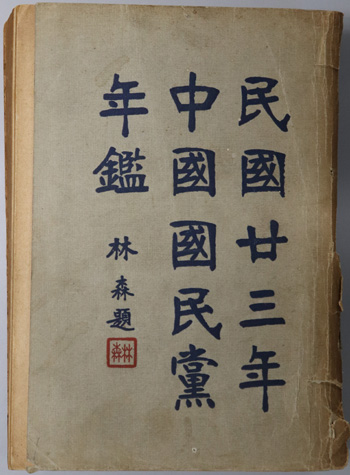 民國廿三年
中國國民黨
年鑑
林森題
林森